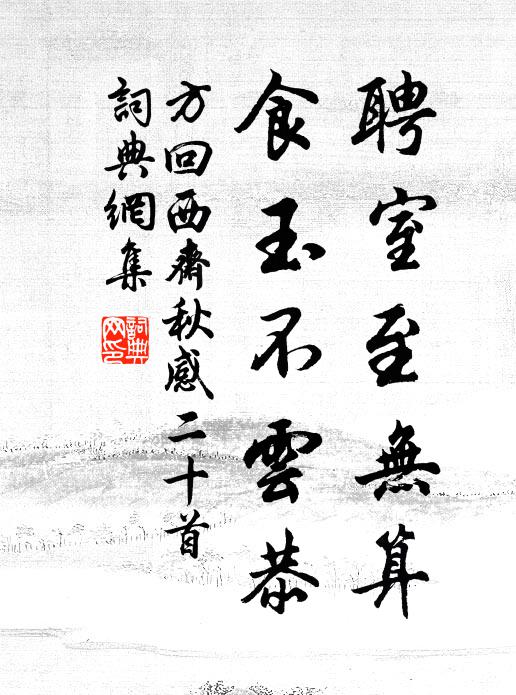 聘室至無算
食玉不雲恭
方回西齋秋感二十首
詞典網集
詞典網印